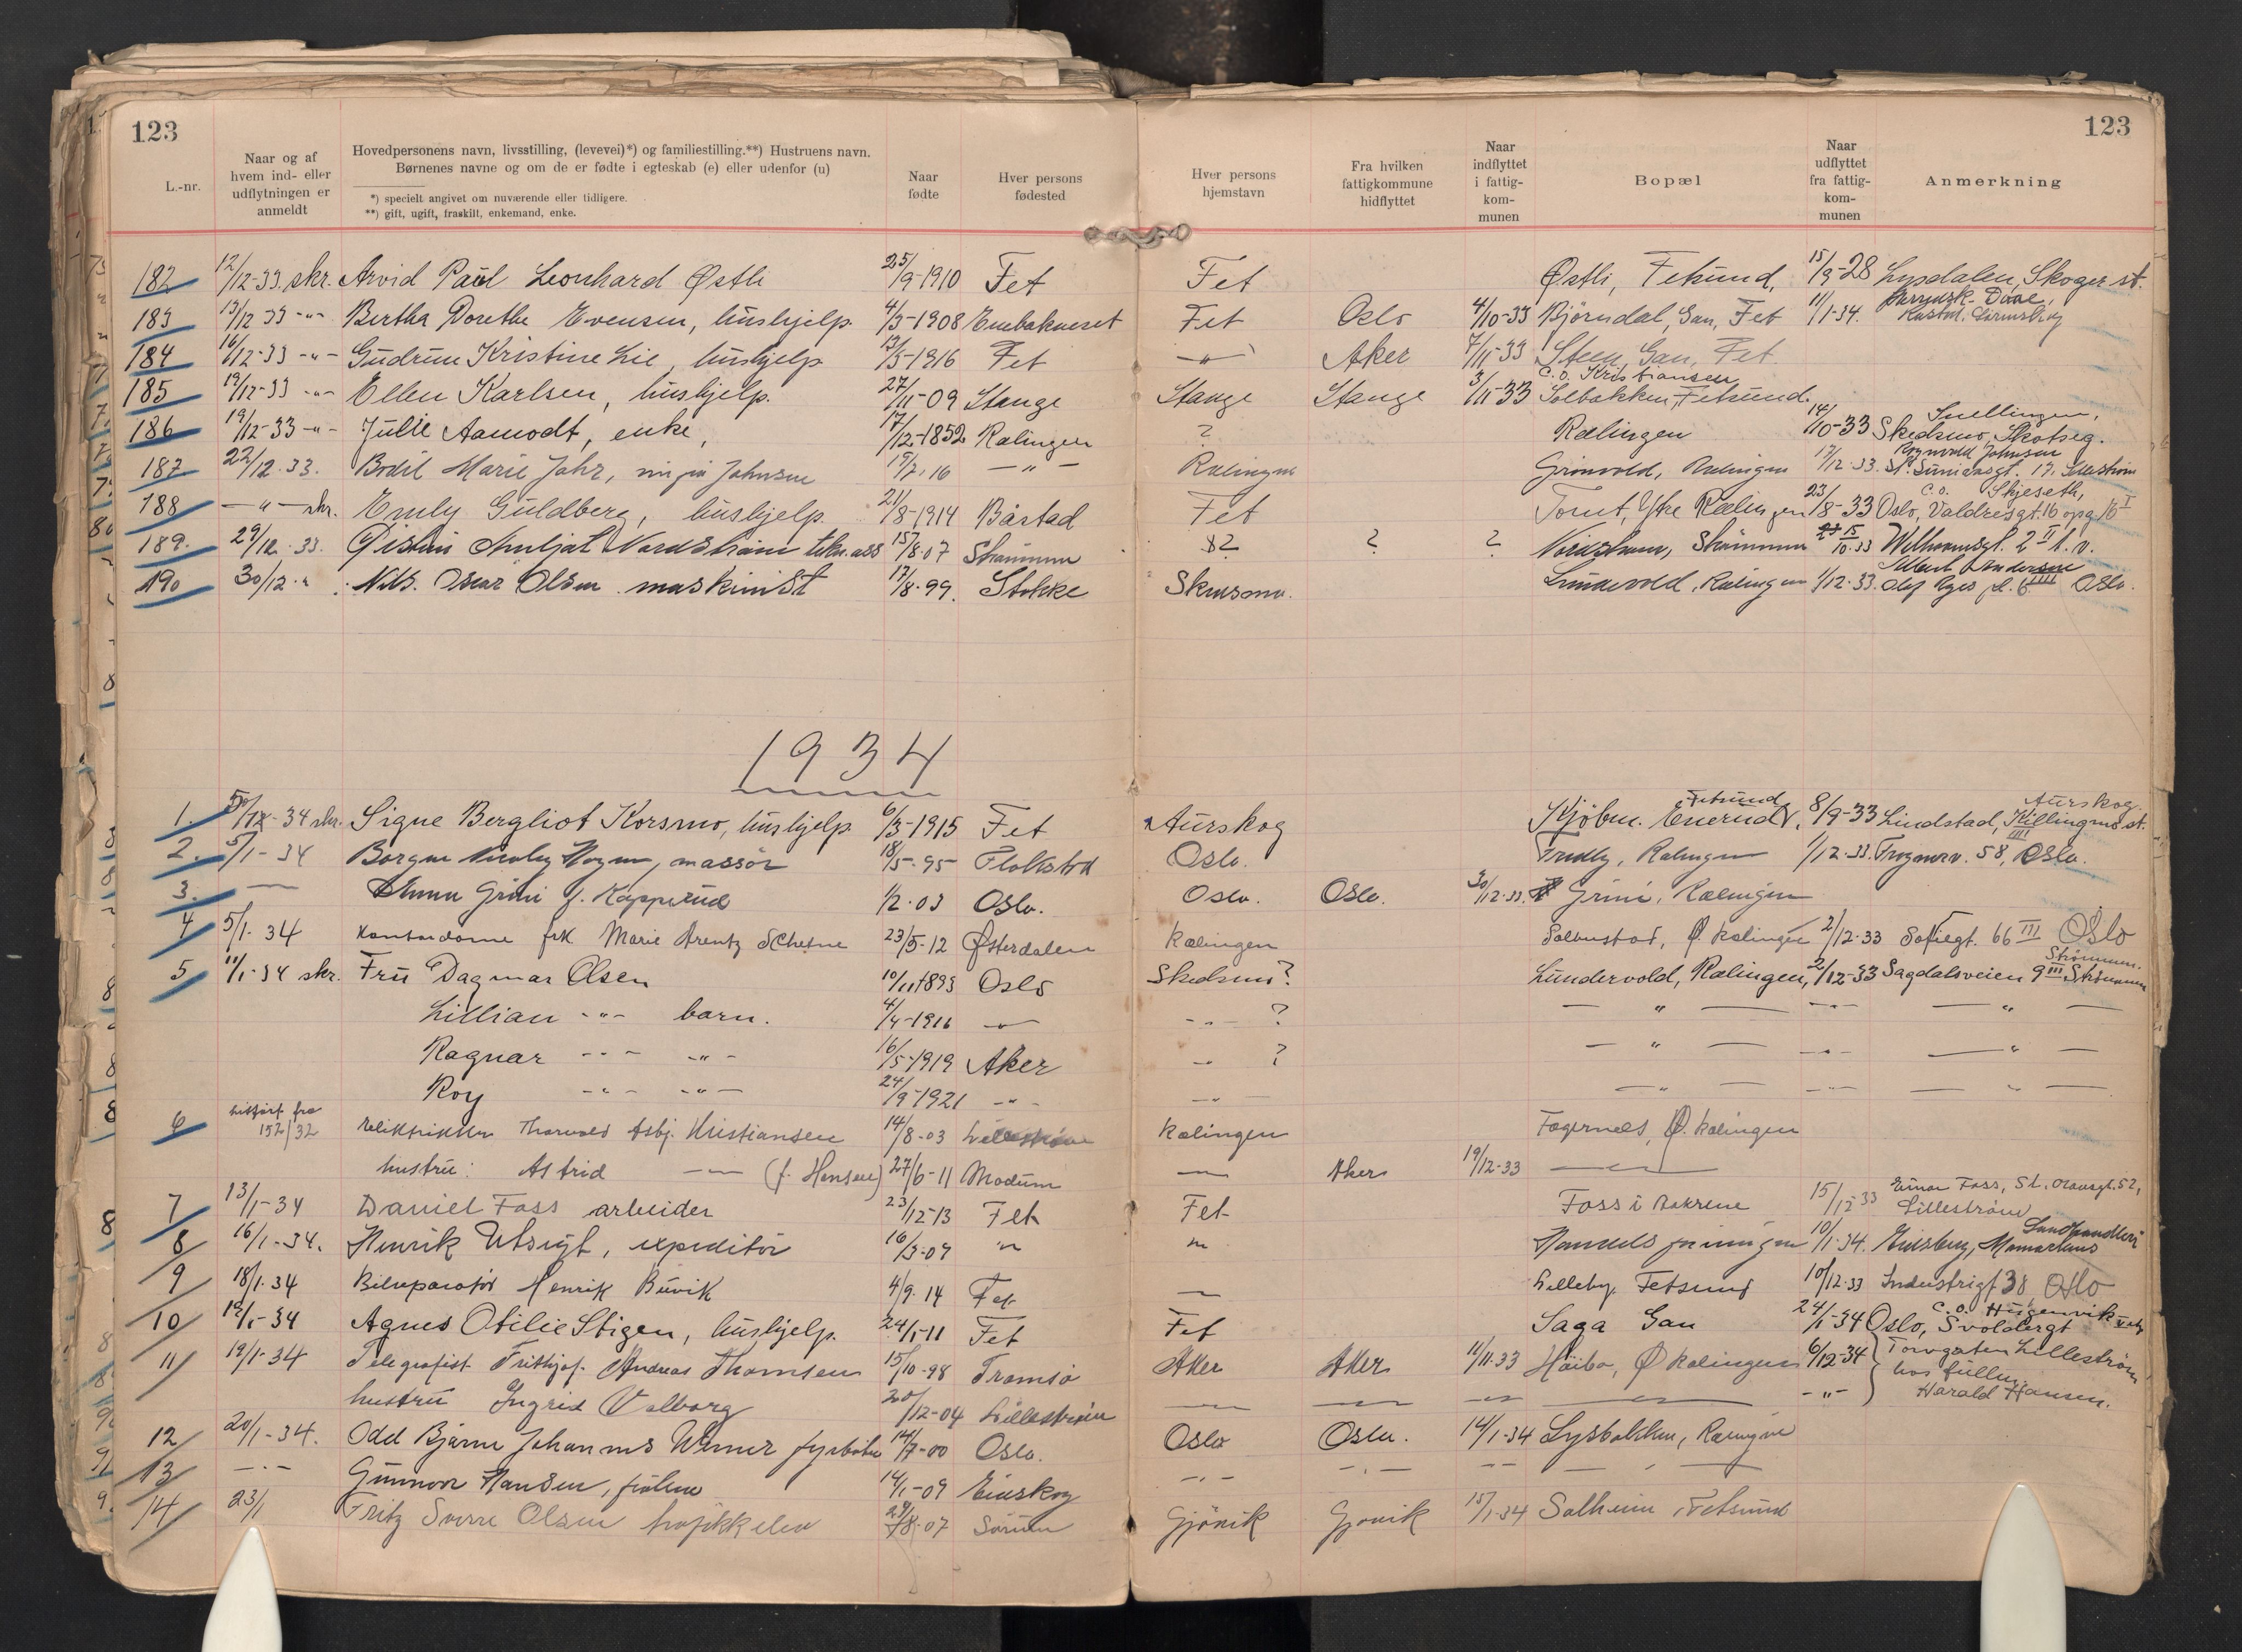 123
123
L.-nr.
Naar og af hvem ind- eller udflytningen er anmeldt
Hovedpersonens navn, livsstilling, (levevei)*) og familiestilling.**) Hustruens navn.
Børnenes navne og om de er fødte i egteskab (e) eller udenfor (u)
*) specielt angivet om nuværende eller tidligere.
**) gift, ugift, fraskilt, enkemand, enke.
Naar fødte
Hver persons fødested
Hver persons hjemstavn
Fra hvilken fattigkommune hidflyttet
Naar indflyttet i fattig-kom-munen
Bopæl
Naar udflyttet fra fattig-kom-munen
Anmerkning
182 12/12-33. skr. Arvid Paul Leonhard Østli 25/9-1910 Fet Fet Østli, Fetsund, 15/9-28 Lysdalen, Skoger st.
183 13/12 33 -"- Bertha Dorethe Evensen, hushjelp. 4/3-1908 Enebakneset Fet Oslo 4/10-33 Björndal, Gan, Fet 11/1-34.
184 16/12-33 -"- Gudrun Kristine Lie, hushjelp 13/5-1916 Fet -"- Aker 7/11-33 Steen, Gan, Fet
c.o. Kristiansen
185 19/12-33 -"- Ellen Karlsen, hushjelp. 27/11-09 Stange Stange Stange 3/11-33 Solbakken, Fetsund.
Snellingen,
186 19/12-33 -"- Julie Aamodt, enke, 17/12-1852 Rælingen ? Rælingen 14/10-33 Skedsmo, Skotseg.
Johnsen
187 22/12.33. Bodil Marie Jahr, Johnsen 19/2.16 -"- Rælingen Grönvold, Rælingen 17/12.33. 17. Lilleström
c.o. Skjeseth,
188 -"- skr. Emly Guldberg, hushjelp. 21/8-1914 Båstad Fet Tomt, Ytre Rælingen 23/8-33 Oslo, Valdresgt. 16 opg. 16 I
189. 29/12.33. Nordström 15/8.07 Strömmen ? ? Nordstrom, Strömmen 15/10.33 2 II t.v.
Andersen
190 30/12 " Nils Oscar Olsen maskinist 17/8.99. Stokke Lundervold, Rælingen 1/12.33. Oslo.
1934
Fetsund Aurskog.
1. 34 skr. Signe Bergliot Korsmo, hushjelp. 6/3-1915 Fet Aurskog Kjöbm. Enerud 8/9-33 Lindstad, Killingmo st.
2. 5/1-34 massör 18/5-95 Oslo. Rælingen 1/12.33. Frognerv. 58, Oslo.
3. — Grini f. Kopperud 1/2.03 Oslo. Oslo. Oslo. 30/12.33. Grini, Rælingen
4 5/1.34 Kontordame frk. Marie Arentz Schetne 23/5-12 Østerdalen Rælingen Ø. Rælingen 2/12.33 Sofiegt. 66 III Oslo
Strömmen.
5 11/1-34 skr. Fru Dagmar Olsen 10/11 1893 Oslo Skedsmo? Lundervold, Rælingen, 2/12-33 Sagdalsveien 9 III Strömmen
Lillian -"- barn. 4/4-1916 -"- -"- ? — " — -"- — " —
Ragnar -"- -"- 16/5-1919 Aker -"- ? — " — -"- — " —
Roy -"- -"- 24/9-1921 -"- -"- — " — -"- — " —
6 hitført fra 152/32 elektriker Thorvald Asbj. Kristiansen 14/8-03 Lilleström Rælingen Fagernes, Ø. Rælingen
hustru: Astrid — (f. Hansen) 27/6-11 Modum — Aker 19/12-33 —
7 13/1-34 Daniel Foss arbeider 23/12-13 Fet Fet Foss i Bakkene 15/12-33 Einar Foss, St. Olavsgt. 52, Lilleström
8 16/1-34. Henrik Utsigt, expeditör 16/3-07 " " 10/1-34. Landhandleri
9 18/1.34 Bilreparatör Henrik Buvik 4/9.14 Fet — Lilleby, Fetsund 10/12.33 Industrigt 38, Oslo
10 19/1-34 Agnes Otilie Stigen, hushjelp. 24/1-11 Fet Fet Saga Gan 24/1-34 Oslo, Svoldergt
11 19/1-34 Telegrafist Frithjof Andreas Thomsen 15/10-98 Tromsö Aker Aker 11/11.33 Höibo, Ø Rælingen 6/12-34 Torvgaten Lilleström
hustru Ingrid Valborg 20/12-04 Lilleström — — — — -"- hos Harald Hansen.
12 20/1-34. Odd Bjarne Johannes Werner fyrböter 14/7-00 Oslo. Oslo Oslo. 14/1-34 Lysbakken, Rælingen
13 -"- Gunnvor Hansen, fröken 14/1-09 Eidskog -"- -"- -- — " —
14 23/1 Fritz Sverre Olsen trafikkelev 29/8.07 Sörum Gjövik Gjövik 15/1-34 Solheim, Fetsund